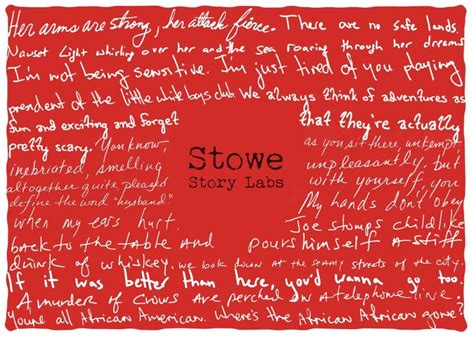 Her arms are strong, her attack fierce. There are no safe lands.
Nauset Light whirling over her and the sea roaring through her dreams
I'm not being sensitive. I'm just tired of you playing
president of the little white boys club. We always think of adventures as
fun and exciting and forget that they're actually
pretty scary. You know, as you sit there, unkempt
inebriated, smelling unpleasantly, but
altogether quite pleased with yourself, you
define the word "husband" My hands don't obey
when my ears hurt. Joe stomps childlike
back to the table and pours himself a stiff
drink of whiskey. we look down at the seamy streets of the city.
If it was better than here, you'd wanna go too.
A murder of crows are perched on a telephone line.
You're all African American. Where's the African African gone?
Stowe
Story Labs